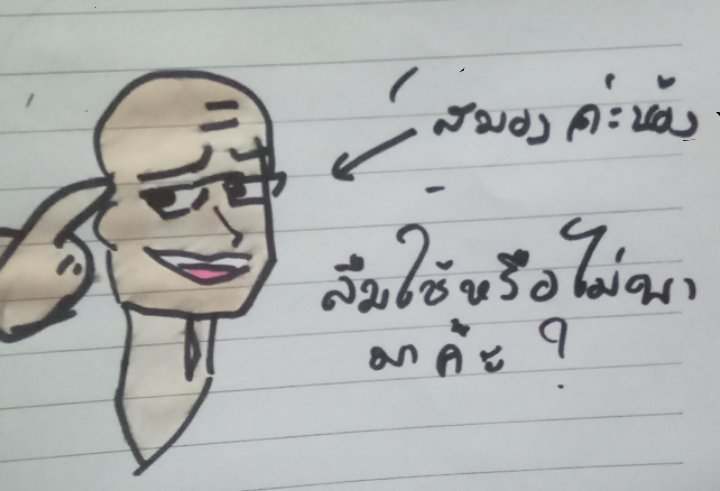 สมอง ค่ะน้อง
ลืมใช้หรือไม่พา
มาคะ ?